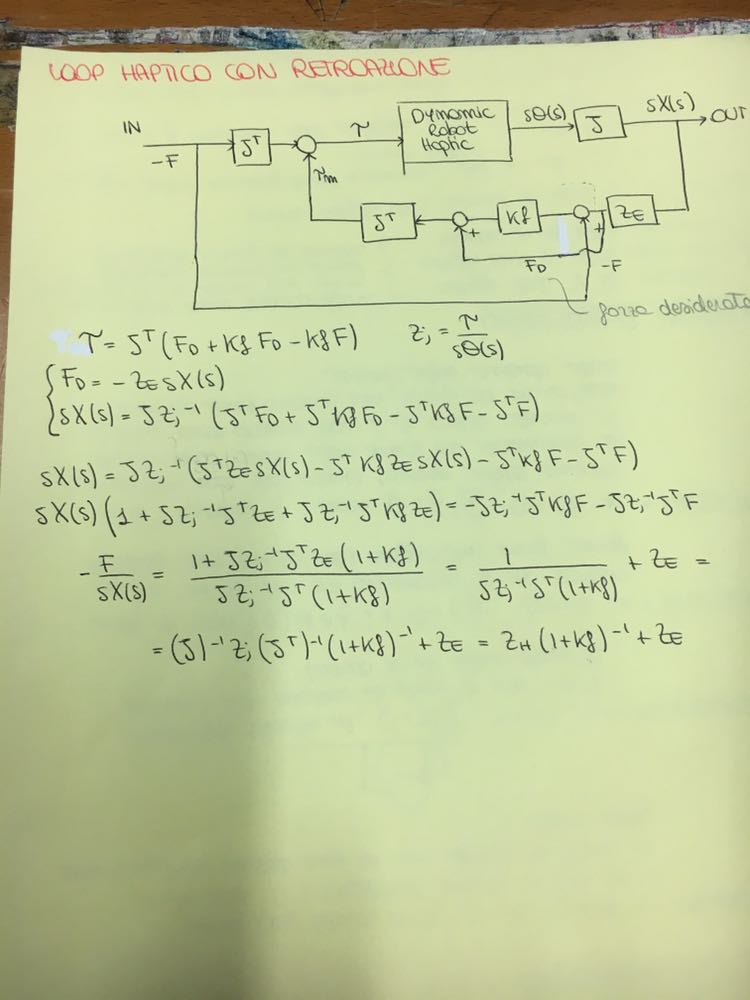 LOOP HAPTICO CON RETROAZIONE
IN
-F
J^T
τ
Dynamic
Robot
Haptic
sΘ(s)
J
sX(s)
OUT
τm
J^T
+
Kf
+
Z_E
F_D
-F
forza desiderata
τ = J^T (F_D + Kf F_D - Kf F)
Z_j = τ / sΘ(s)
F_D = - Z_E sX(s)
sX(s) = J Z_j^-1 (J^T F_D + J^T Kf F_D - J^T Kf F - J^T F)
sX(s) = J Z_j^-1 (J^T Z_E sX(s) - J^T Kf Z_E sX(s) - J^T Kf F - J^T F)
sX(s) (1 + J Z_j^-1 J^T Z_E + J Z_j^-1 J^T Kf Z_E) = -J Z_j^-1 J^T Kf F - J Z_j^-1 J^T F
- F / sX(s) = 1 + J Z_j^-1 J^T Z_E (1+Kf) / J Z_j^-1 J^T (1+Kf) = 1 / J Z_j^-1 J^T (1+Kf) + Z_E =
= (J)^-1 Z_j (J^T)^-1 (1+Kf)^-1 + Z_E = Z_H (1+Kf)^-1 + Z_E